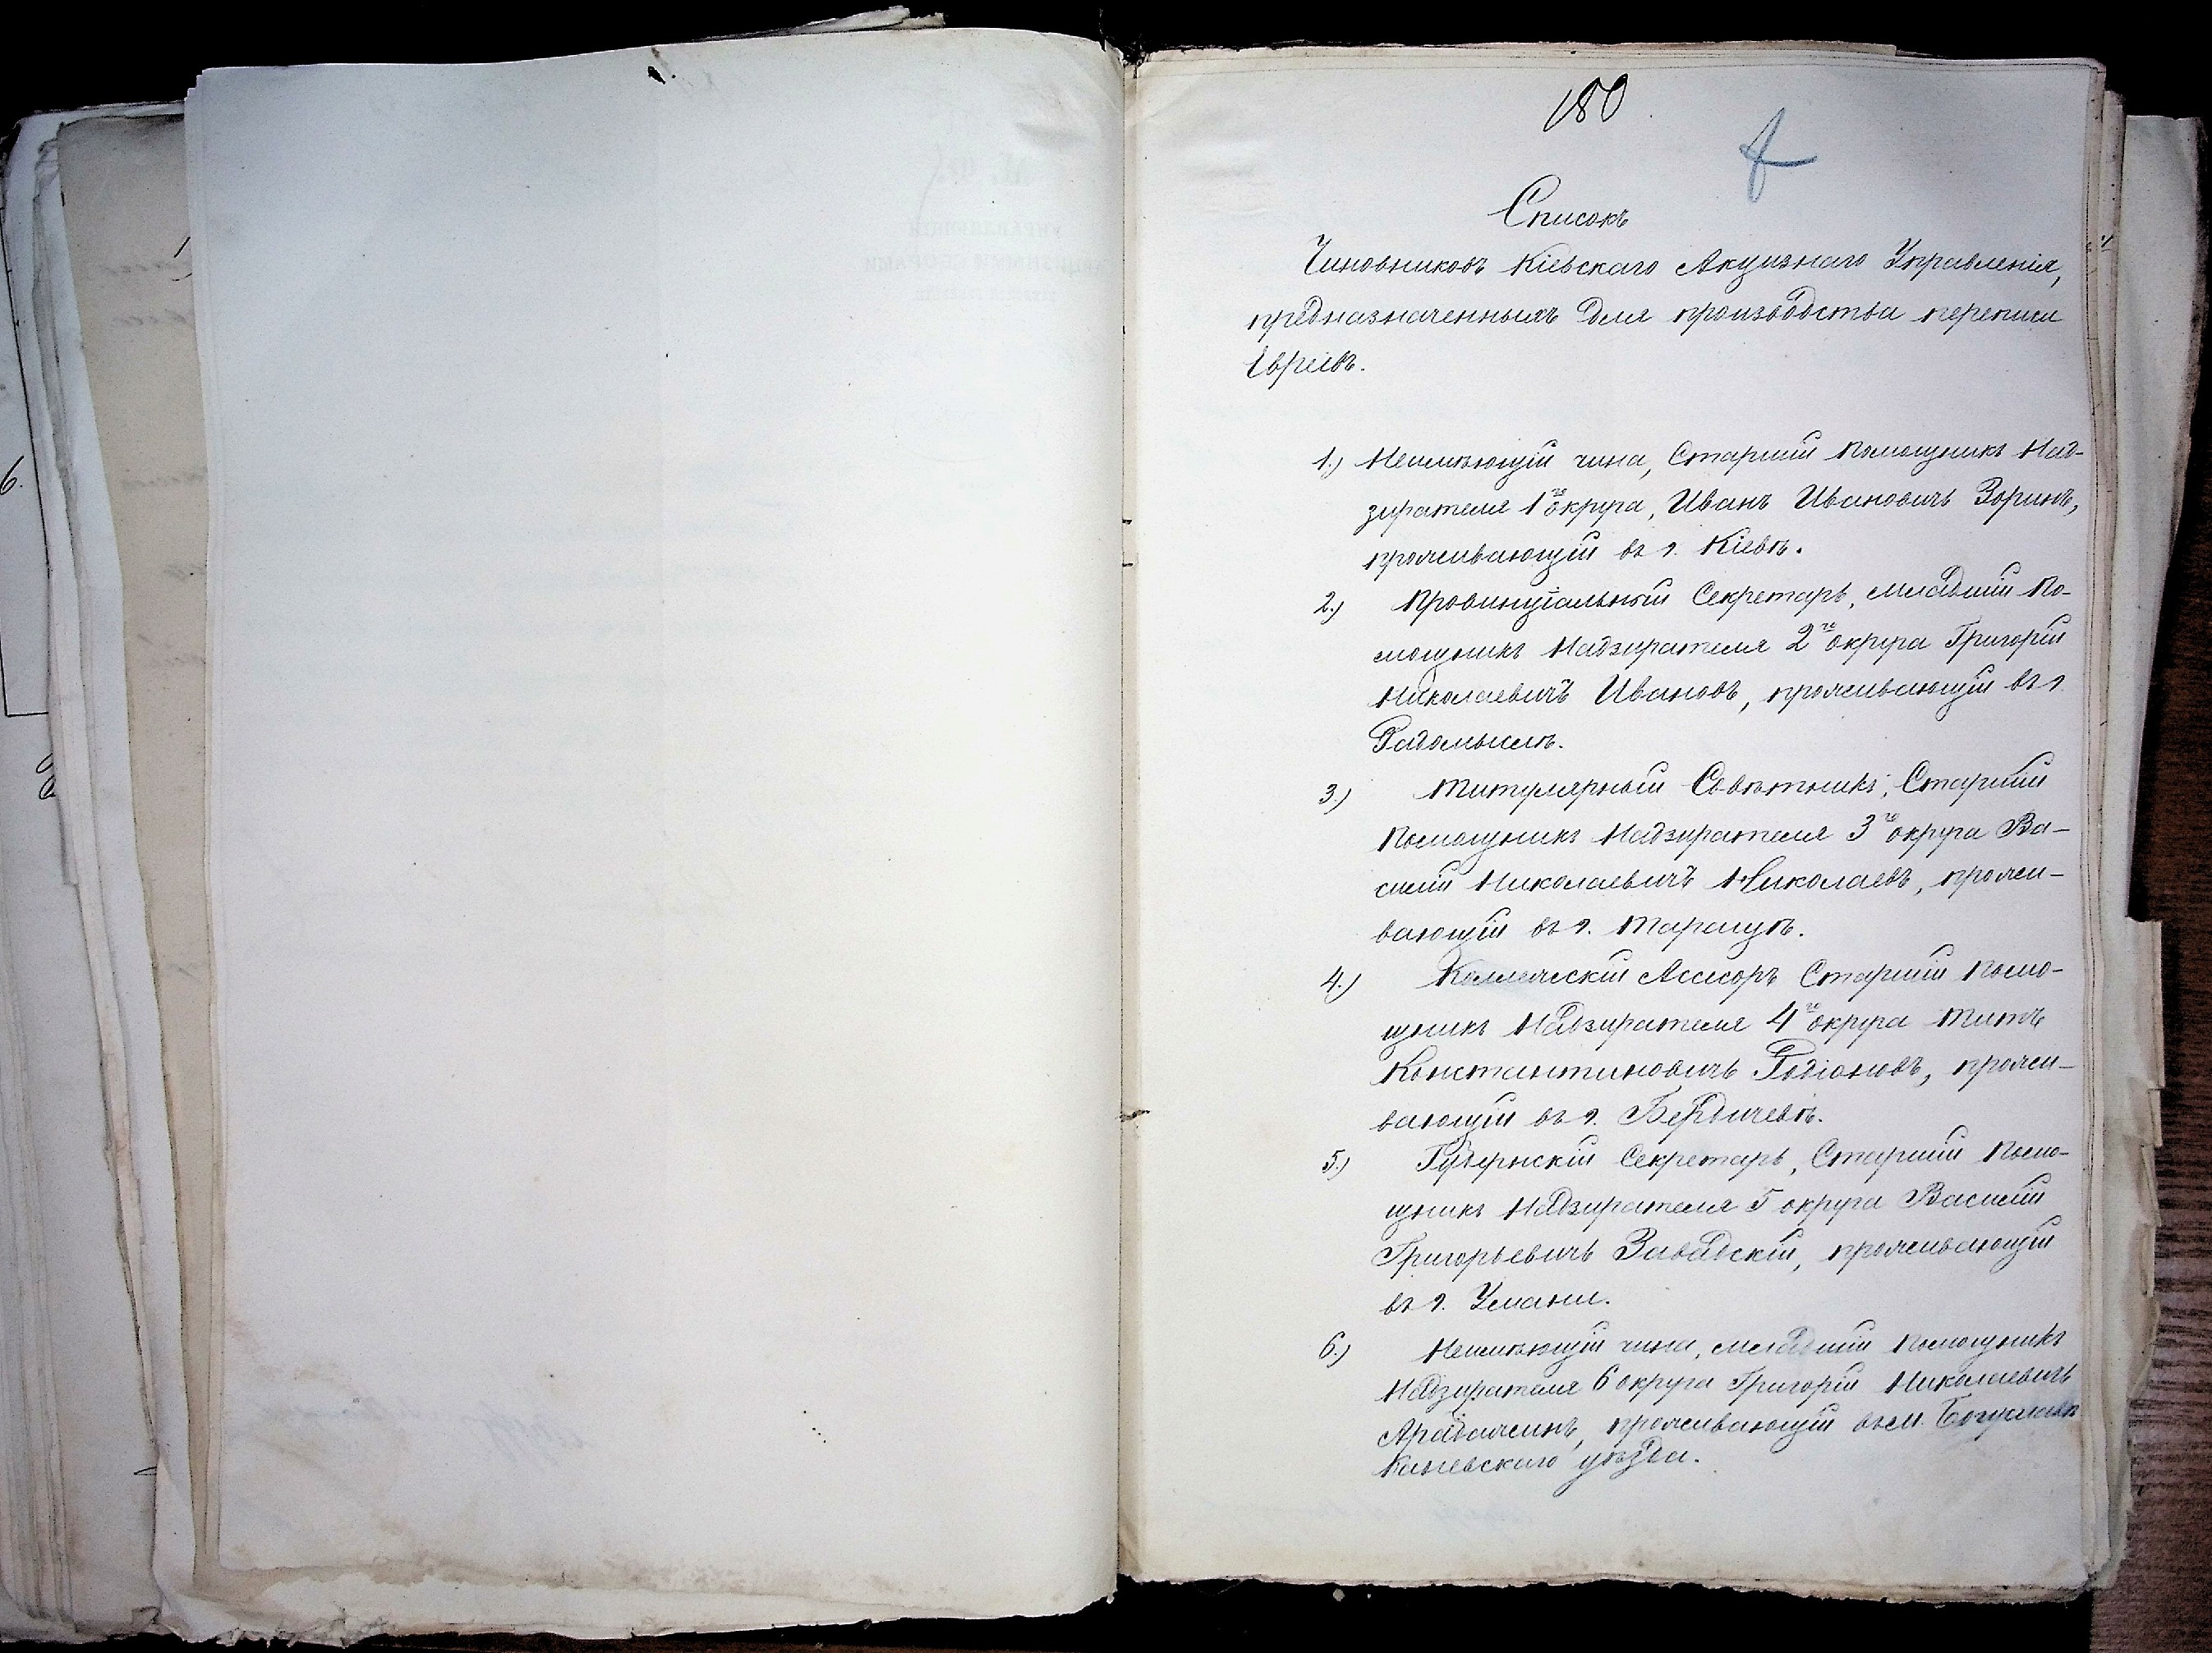 180
Списокъ
Чиновниковъ Кіевскаго Акцизнаго Управленія,
предназначенныхъ для производства переписи
Евреевъ.
1.) Неимѣющій чина, Старшій Помощникъ Над-
зирателя 1го округа, Иванъ Ивановичъ Зоринъ,
проживающій въ г. Кіевѣ.
2.) Провинціальный Секретарь, младшій По-
мощникъ Надзирателя 2го округа Григорій
Николаевичъ Ивановъ, проживающій въ г.
Радомыслѣ.
3.) Титулярный Совѣтникъ, Старшій
Помощникъ Надзирателя 3го округа Ва-
силій Николаевичъ Николаевъ, прожи-
вающій въ г. Таращѣ.
4.) Коллежскій Асесоръ Старшій Помо-
щникъ Надзирателя 4го округа Титъ
Константиновичъ Родіоновъ, прожи-
вающій въ г. Бердичевѣ.
5.) Губернскій Секретарь, Старшій Помо-
щникъ Надзирателя 5 округа Василій
Григорьевичъ Завадскій, проживающій
въ г. Умани.
6.) Неимѣющій чина, младшій Помощникъ
Надзирателя 6 округа Григорій Николаевичъ
проживающій въ м. Богуславѣ
Каневскаго уѣзда.
6.